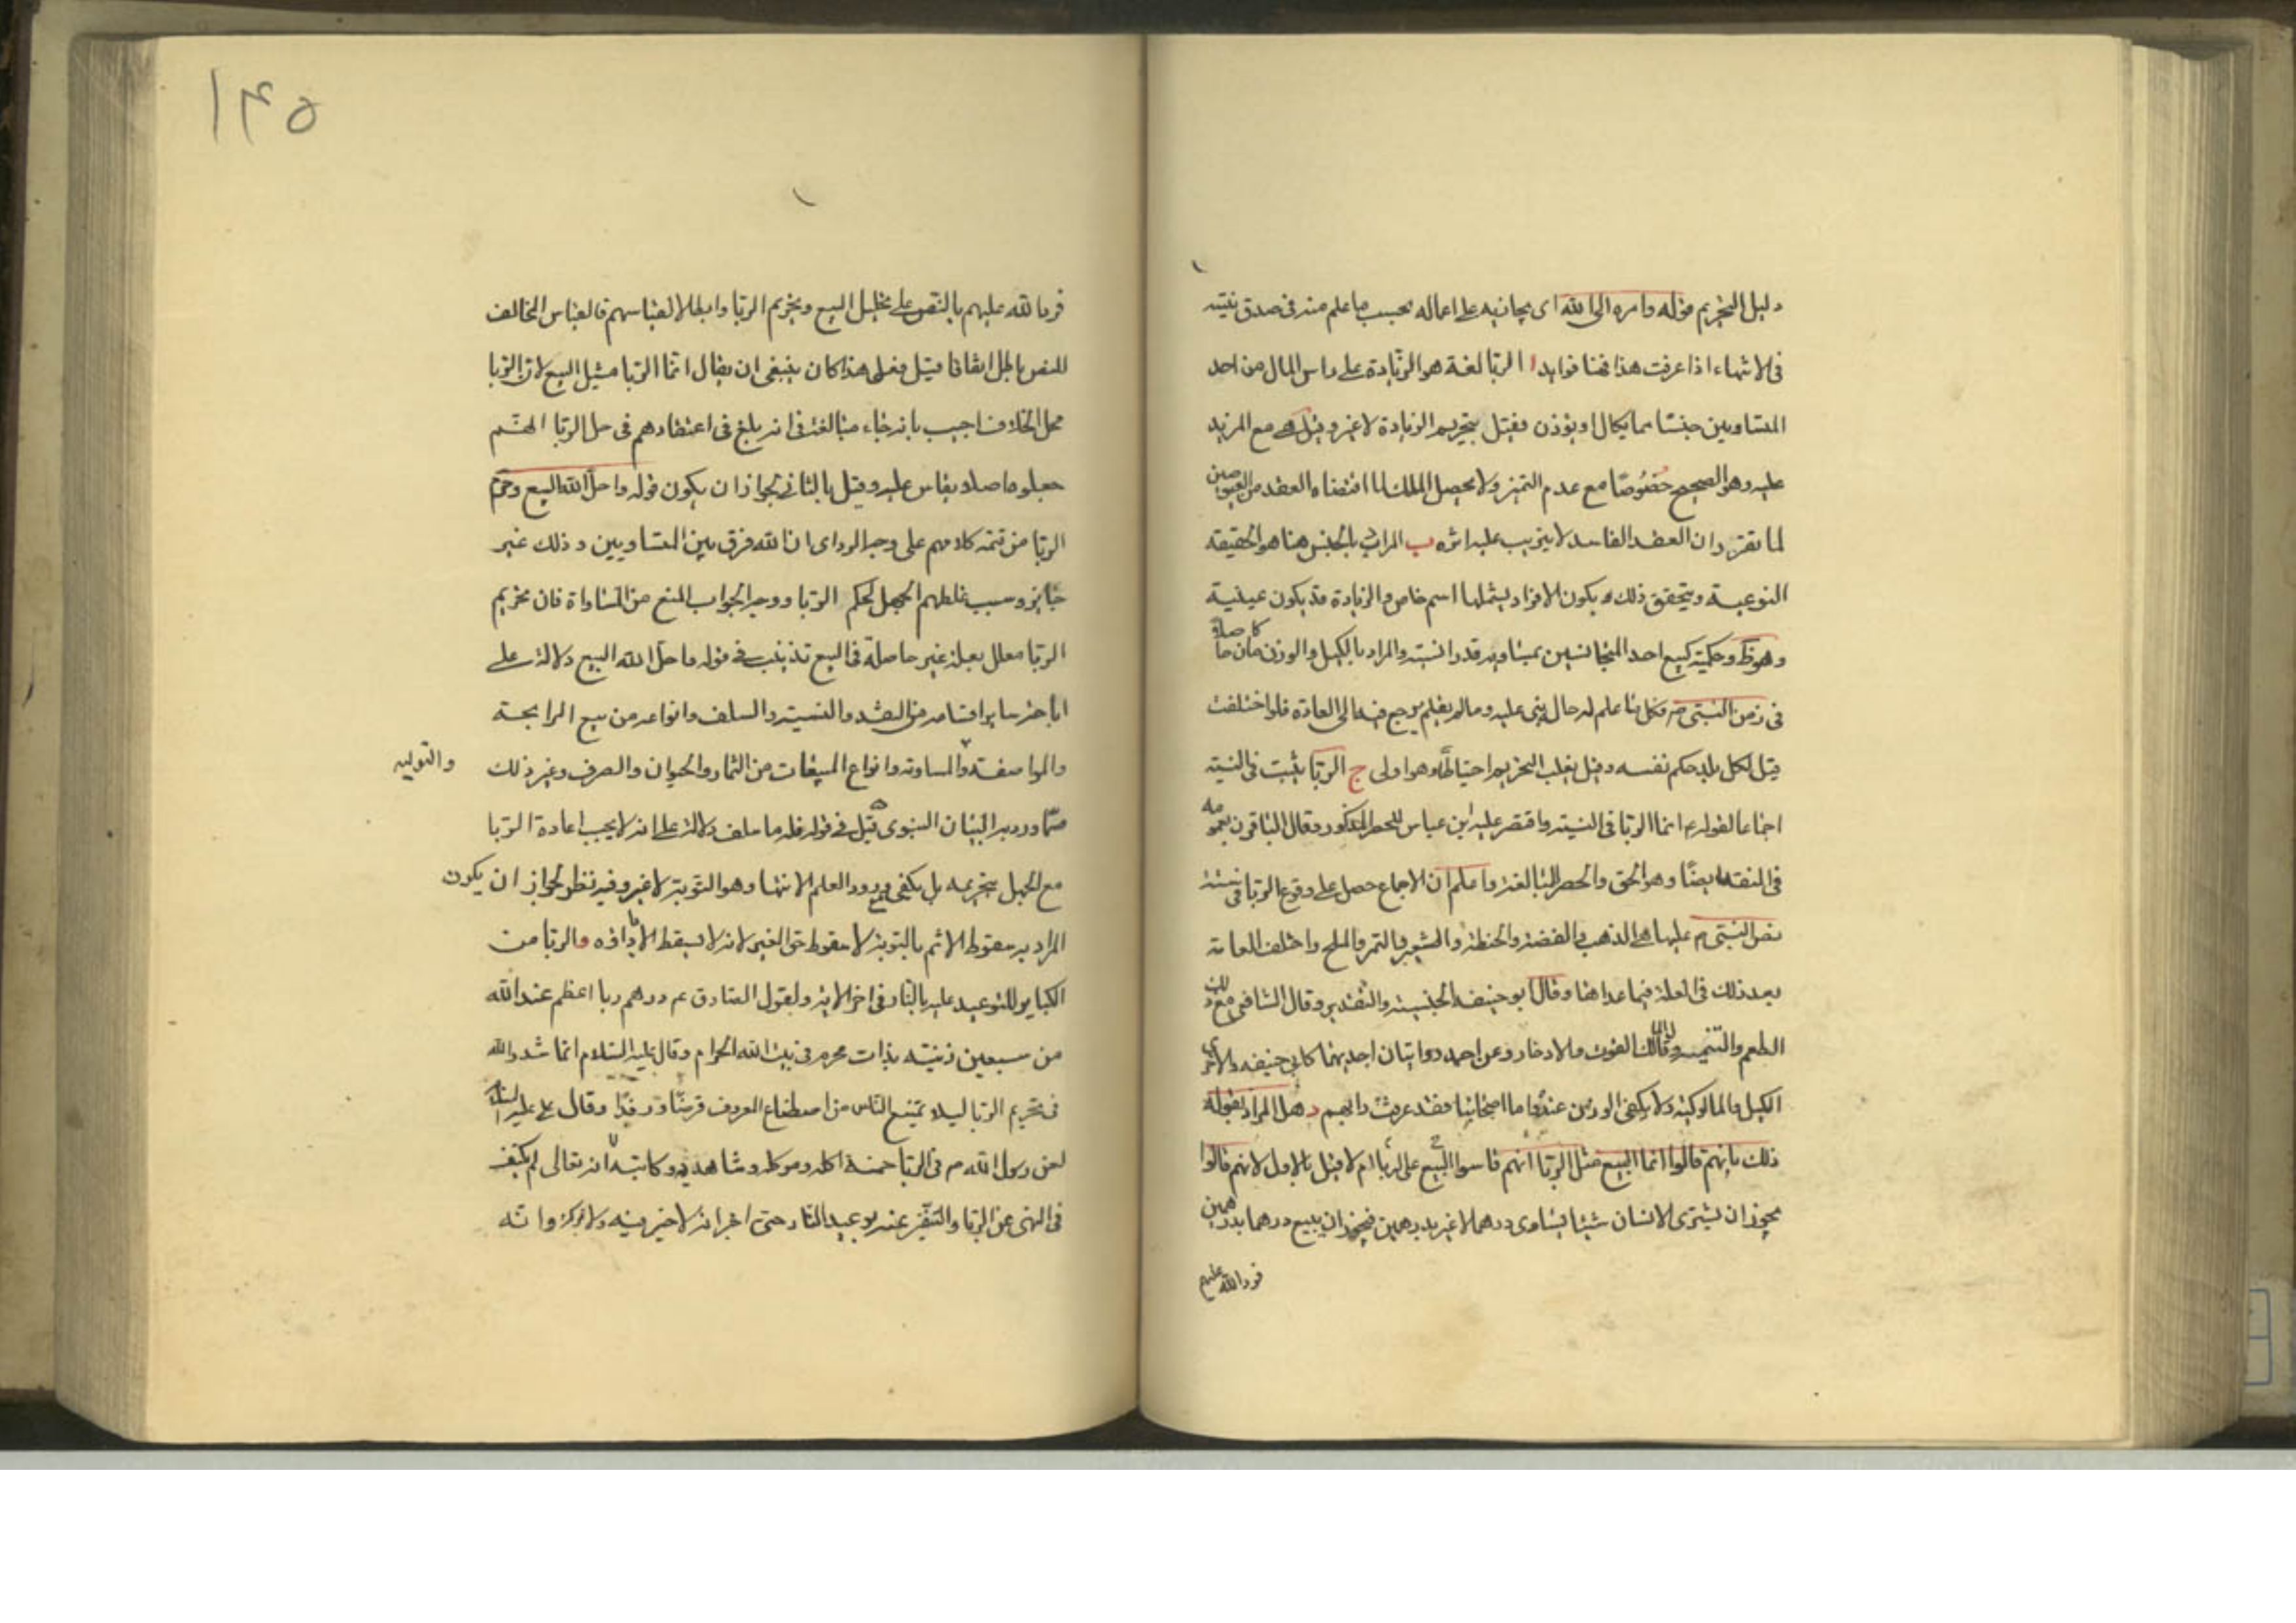 دليل التحريم قوله وامره الى الله اى يجازيه على اعماله بحسب ما علم منه فى صدق نيته
فى الانتهاء اذا عرفت هذا فهنا فوايد ا الربا لغة هو الزيادة على راس المال من احد
المتساويين جنسا مما يكال او يوزن فقيل بتحريم الزيادة لا غير وقيل هى مع المزيد
عليه وهو الصحيح خصوصا مع عدم التميز ولا يحصل الملك لما اقتضاه العقد من العوضين
لما تقرر ان العقد الفاسد لا يترتب عليه اثره ب المراد بالجنس هنا هو الحقيقة
النوعية ويتحقق ذلك بكون الافراد يشملها اسم خاص والزيادة قد يكون عينية
وهو ظ وحكمية كبيع احد المتجانسين بمساويه قدرا نسيته والمراد بالكيل والوزن ما كان حاصلا
فى زمن النبى ص فكل ما علم له حال بنى عليه وما لم يعلم يرجع فيه الى العادة فلو اختلفت
قيل لكل بلد حكم نفسه وقيل يغلب التحريم احتياطا وهو اولى ج الربا يثبت فى النسيته
اجماعا لقوله ع انما الربا فى النسيته واقتصر عليه ابن عباس للحصر المذكور وقال الباقون بعمومه
فى النقد ايضا وهو الحق والحصر للمبالغة واعلم ان الاجماع حصل على وقوع الربا فى ستة
نص النبى م عليها هى الذهب والفضة والحنطة والشعير والتمر والملح واختلف العامة
بعد ذلك فى العلة فيما عداها وقال ابو حنيفه الجنسية والتقدير وقال الشافعى مع ذلك
الطعم والتنمية وقال مالك القوت والادخار وعن احمد روايتان احديهما كابى حنيفه والاخرى
الكيل والماكولية ولا يكفى الوزن عنده واما اصحابنا فقد عرفت رايهم د هل المراد بقوله
ذلك بانهم قالوا انما البيع مثل الربا انهم قاسوا البيع على الربا ام لا قيل بالاول لانهم قالوا
يجوز ان يشترى الانسان شيئا يساوى درهما لا غير بدرهمين فيجوز ان يبيع درهما بدرهمين
فرد الله عليهم
۱۴۵
فرد الله عليهم بالنص على تحليل البيع وتحريم الربا وابطالا لقياسهم فالقياس المخالف
للنص باطل اتفاقا قيل فعلى هذا كان ينبغى ان يقال انما الربا مثل البيع لان الربا
محل الخلاف اجيب بانه جاء مبالغة فى انه بلغ فى اعتقادهم فى حل الربا انهم
جعلوه اصلا يقاس عليه وقيل بالثانى لجواز ان يكون قوله واحل الله البيع وحرم
الربا من تتمة كلامهم على وجه الرد اى ان الله فرق بين المتساويين وذلك غير
جايز وسبب غلطهم الجهل لحكم الربا ووجه الجواب المنع من المساواة فان تحريم
الربا معلل بعلة غير حاصلة فى البيع تذنيب فى قوله واحل الله البيع دلالة على
اباحة ساير اقسامه من النقد والنسيته والسلف وانواعه من بيع المرابحة
والمواضعة والمساومة وانواع المبيعات من الثمار والحيوان والصرف وغير ذلك
والتوليه
مما ورد به البيان النبوى ه قيل فى قوله فله ما سلف دلالة على انه لا يجب اعادة الربا
مع الجهل بتحريمه بل يكفى مع ورود العلم الانتهاء وهو التوبة لا غير وفيه نظر لجواز ان يكون
المراد به سقوط الاثم بالتوبة لا سقوط حق الغير لانه لا يسقط الا باداؤه و الربا من
الكباير للتوعيد عليه بالنار فى اخر الاية ولقول الصادق ع درهم ربا اعظم عند الله
من سبعين زنيته بذات محرم فى بيت الله الحرام وقال عليه السلام انما شدد الله
فى تحريم الربا ليلا يمتنع الناس من اصطناع المعروف قرضا ورفدا وقال على عليه السلام
لعن رسول الله م فى الربا خمسة اكله وموكله وشاهديه وكاتبه انه تعالى لم يكتف
فى النهى عن الربا والتنفير عنه بوعيد النار حتى اخبر انه لا خير فيه ولا بركة وانه